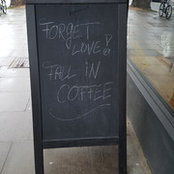 FORGET
LOVE!
FALL IN
COFFEE